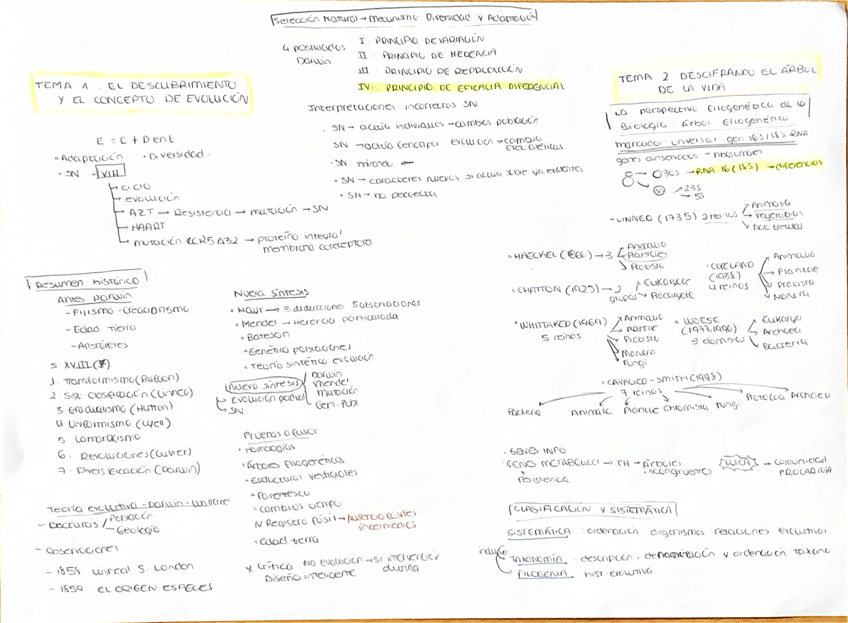 Selección Natural → Mecanismo Diversidad y Adaptación
4 postulados Darwin
I. PRINCIPIO DE VARIACIÓN
II. PRINCIPIO DE HERENCIA
III. PRINCIPIO DE REPRODUCCIÓN
IV. PRINCIPIO DE EFICACIA DIFERENCIAL
Interpretaciones incorrectas SN
· SN → actúa individuos → cambios población
· SN → actúa fenotipos evolución → cambio
· SN mirando ←
· SN → caracteres nuevos si actúa sobre ya existentes
· SN → no perfecta
TEMA 1: EL DESCUBRIMIENTO
Y EL CONCEPTO DE EVOLUCIÓN
· Adaptación · Diversidad.
· SN - VIH
→ ciclo
→ evolución
→ AZT → Resistencia → mutación → SN
→ HAART
→ mutación CCR5 Δ32 → proteína integral
membrana
Resumen histórico
Antes Darwin
- Fijismo - Creacionismo
- Edad tierra
- Aristóteles
S XVIII
1. Transformismo (Buffon)
2. Sist. Clasificación (Linneo)
3. Gradualismo (Hutton)
4. Uniformismo (Lyell)
5. Lamarckismo
6. Revoluciones (Cuvier)
7. Diversificación (Darwin)
Teoría evolutiva - Darwin - Wallace
- Lecturas / Población
Geología
- Observaciones
- 1858 Linneal S. London
- 1859 EL ORIGEN ESPECIES
Nueva síntesis
· Mayr → 3 deducciones 5 observaciones
· Mendel → Herencia particulada
· Bateson
· Genética poblaciones
· Teoría sintética evolución
Nueva síntesis
Darwin
Mendel
Mutación
Gen. Pobl
→ Evolución gradual
→ SN
Pruebas a favor
· Homologías
· Árboles filogenéticos
· Estructuras vestigiales
· Parentesco
· Cambios tiempo
N Registro fósil → Ausencia fósiles
intermedios
· Edad tierra
Y Crítica NO EVOLUCIÓN → SI intervención
Diseño inteligente divina
TEMA 2 DESCIFRANDO EL ÁRBOL
DE LA VIDA
La perspectiva filogenética de la
Biología: Árbol filogenético
marcador universal gen 16S/18S RNA
genes
30S → RNA 16 (18S) → diferencias
23S
5S
· LINNEO (1735) 2 reinos
Animalia
Vegetabilia
Not treated
· HAECKEL (1866) → 3
Animalia
Plantae
Protista
· COPELAND
(1938)
4 reinos
Animalia
Plantae
Protista
Monera
· CHATTON (1925) → 2
grupos
Eukaryote
Prokaryote
· WHITTAKER (1969)
5 reinos
Animalia
Plantae
Protista
Monera
Fungi
· WOESE
(1977, 1990)
3 dominios
Eukarya
Archaea
Bacteria
· CAVALIER-SMITH (1998)
7 reinos
Bacteria Animalia Plantae Chromista Fungi Protozoa Archaea
· GENES INFO
· GENES METABOL → TH → Árboles
incongruentes
LUCA → comunidad
PROCARIOTA
CLASIFICACIÓN Y SISTEMÁTICA
SISTEMÁTICA: ordenación organismos relaciones evolutivas
incluye
TAXONOMÍA: descripción, denominación y ordenación taxones
FILOGENIA: hist. evolutiva